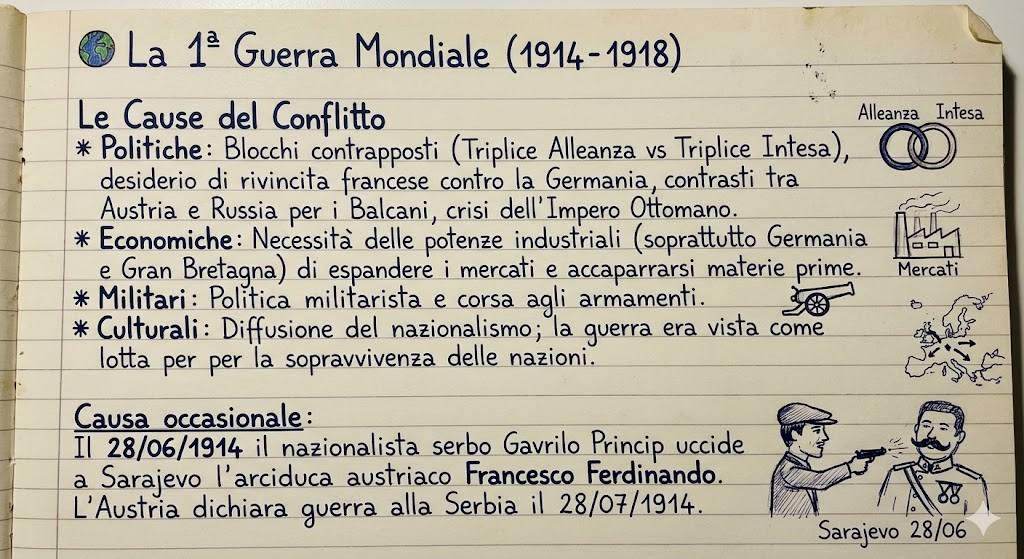 La 1ª Guerra Mondiale (1914-1918)
Le Cause del Conflitto
* Politiche: Blocchi contrapposti (Triplice Alleanza vs Triplice Intesa),
desiderio di rivincita francese contro la Germania, contrasti tra
Austria e Russia per i Balcani, crisi dell'Impero Ottomano.
* Economiche: Necessità delle potenze industriali (soprattutto Germania
e Gran Bretagna) di espandere i mercati e accaparrarsi materie prime.
* Militari: Politica militarista e corsa agli armamenti.
* Culturali: Diffusione del nazionalismo; la guerra era vista come
lotta per per la sopravvivenza delle nazioni.
Alleanza Intesa
Mercati
Causa occasionale:
Il 28/06/1914 il nazionalista serbo Gavrilo Princip uccide
a Sarajevo l'arciduca austriaco Francesco Ferdinando.
L'Austria dichiara guerra alla Serbia il 28/07/1914.
Sarajevo 28/06